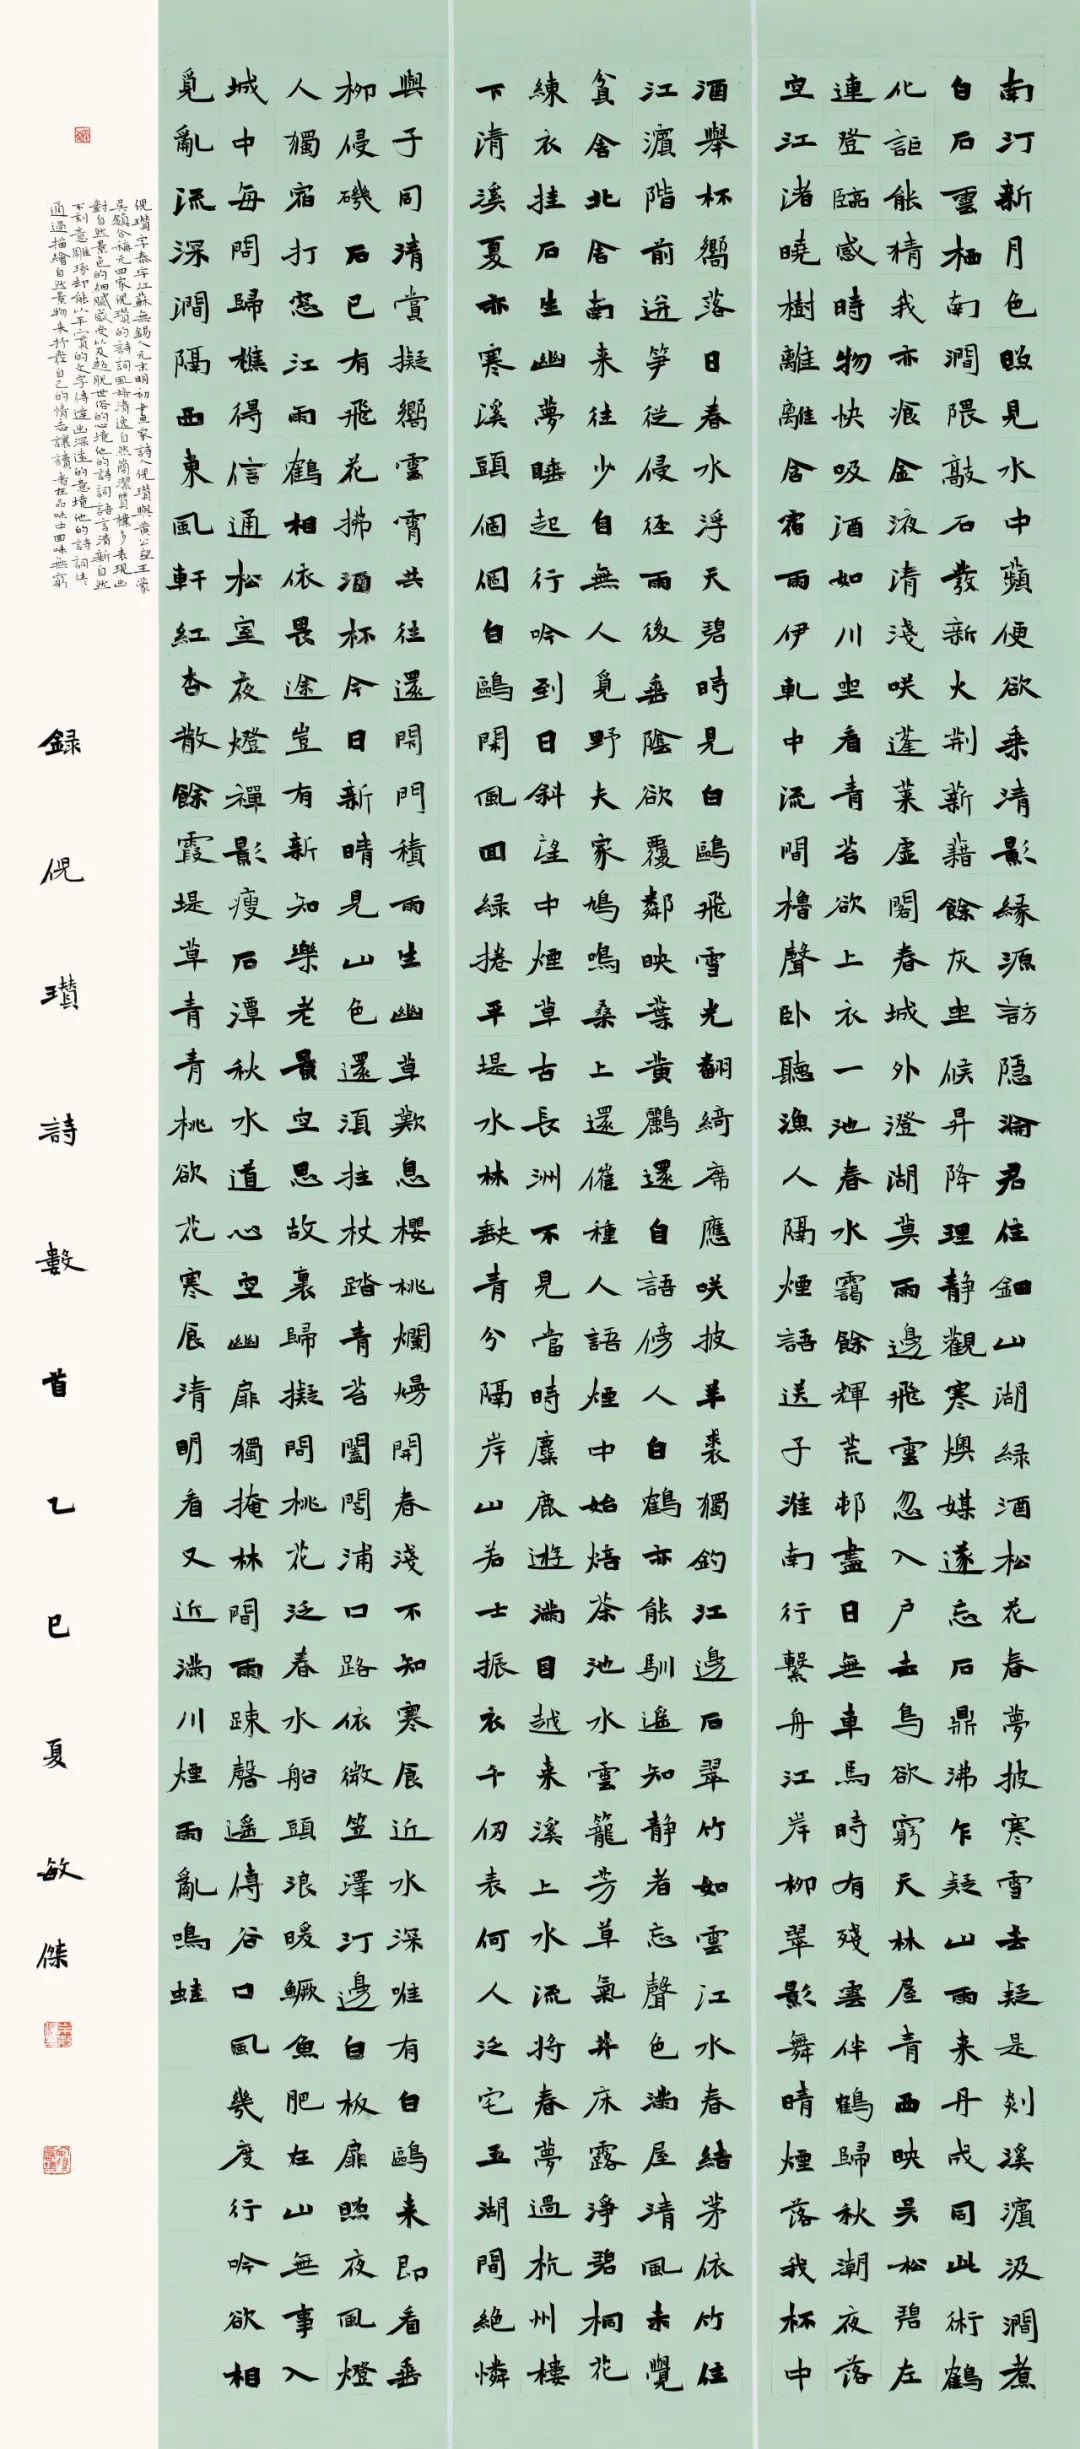 南汀新月色照見水中蘋便欲乘清影緣源訪隱淪君住鉏山湖綠酒松花春夢披寒雪去疑是剡溪濱汲澗煮
白石雲栖南澗隈敲石發新火荆薪藉餘灰坐候升降理靜觀寒燠媒遂忘石鼎沸乍疑山雨来丹成同此術鶴
化詎能猜我亦飡金液清淺咲蓬莱虛閣春城外澄湖莫雨邊飛雲忽入户去鳥欲窮天林屋青西映吴松碧左
連登臨感時物快吸酒如川坐看青苔欲上衣一池春水靄餘輝荒邨盡日無車馬時有殘雲伴鶴歸秋潮夜落
空江渚曉樹離離含宿雨伊軋中流間櫓聲卧聽漁人隔煙語送子淮南行繫舟江岸柳翠影舞晴煙落我杯中
酒舉杯嚮落日春水浮天碧時見白鷗飛雪光翻綺席應咲披羊裘獨釣江邊石翠竹如雲江水春結茅依竹住
江濵階前迸笋從侵徑雨後垂陰欲覆鄰映葉黄鸝還自語傍人白鶴亦能馴遥知静者忘聲色滿屋清風未覺
貧舍北舍南来往少自無人覓野夫家鳩鳴桑上還催種人語煙中始焙茶池水雲籠芳草氣井床露淨碧桐花
練衣挂石生幽夢睡起行吟到日斜望中煙草古長洲不見當時麋鹿遊滿目越来溪上水流将春夢過杭州棲
下清溪夏亦寒溪頭個個白鷗閑風回綠捲平堤水林缺青分隔岸山若士振衣千仞表何人泛宅五湖間絶憐
與子同清賞擬嚮雲霄共往還閉門積雨生幽草歎息櫻桃爛熳開春淺不知寒食近水深唯有白鷗来即看垂
柳侵磯石已有飛花拂酒杯今日新晴見山色還須拄杖踏青苔闔閭浦口路依微笠澤汀邊白板扉照夜風燈
人獨宿打窓江雨鶴相依畏途豈有新知樂老景空思故裏歸擬問桃花泛春水船頭浪暖鱖魚肥在山無事入
城中每問歸樵得信通松室夜燈禪影瘦石潭秋水道心空幽扉獨掩林間雨疎磬遥傳谷口風幾度行吟欲相
覓亂流深澗隔西東風軒紅杏散餘霞堤草青青桃欲花寒食清明看又近滿川煙雨亂鳴蛙
倪瓚字泰宇江蘇無錫人元末明初畫家詩人倪瓚與黄公望王蒙
吴鎮合稱元四家倪瓚的詩詞風格清逸自然簡潔質樸多表現出
對自然景色的細膩感受以及超脱世俗的心境他的詩詞語言清新自然
不刻意雕琢却能以平實的文字傳達出深遠的意境他的詩詞往往
通過描繪自然景物来抒發自己的情志讓讀者在品味中回味無窮
録倪瓚詩數首乙巳夏敏傑